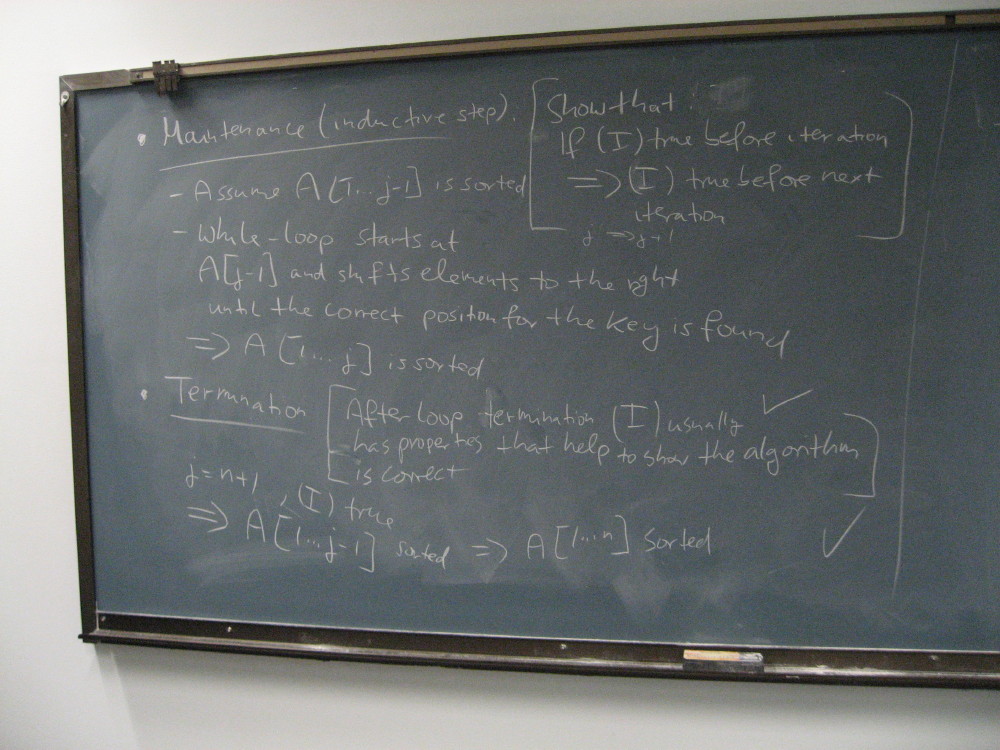 • Maintenance (inductive step). [Show that:
If (I) true before iteration
=> (I) true before next
iteration
j => j+1]
- Assume A[1...j-1] is sorted
- While-loop starts at
A[j-1] and shifts elements to the right
until the correct position for the key is found
=> A[1...j] is sorted
• Termination [After loop termination (I) usually ✓
has properties that help to show the algorithm
is correct]
j=n+1, (I) true
=> A[1...j-1] sorted => A[1...n] sorted ✓